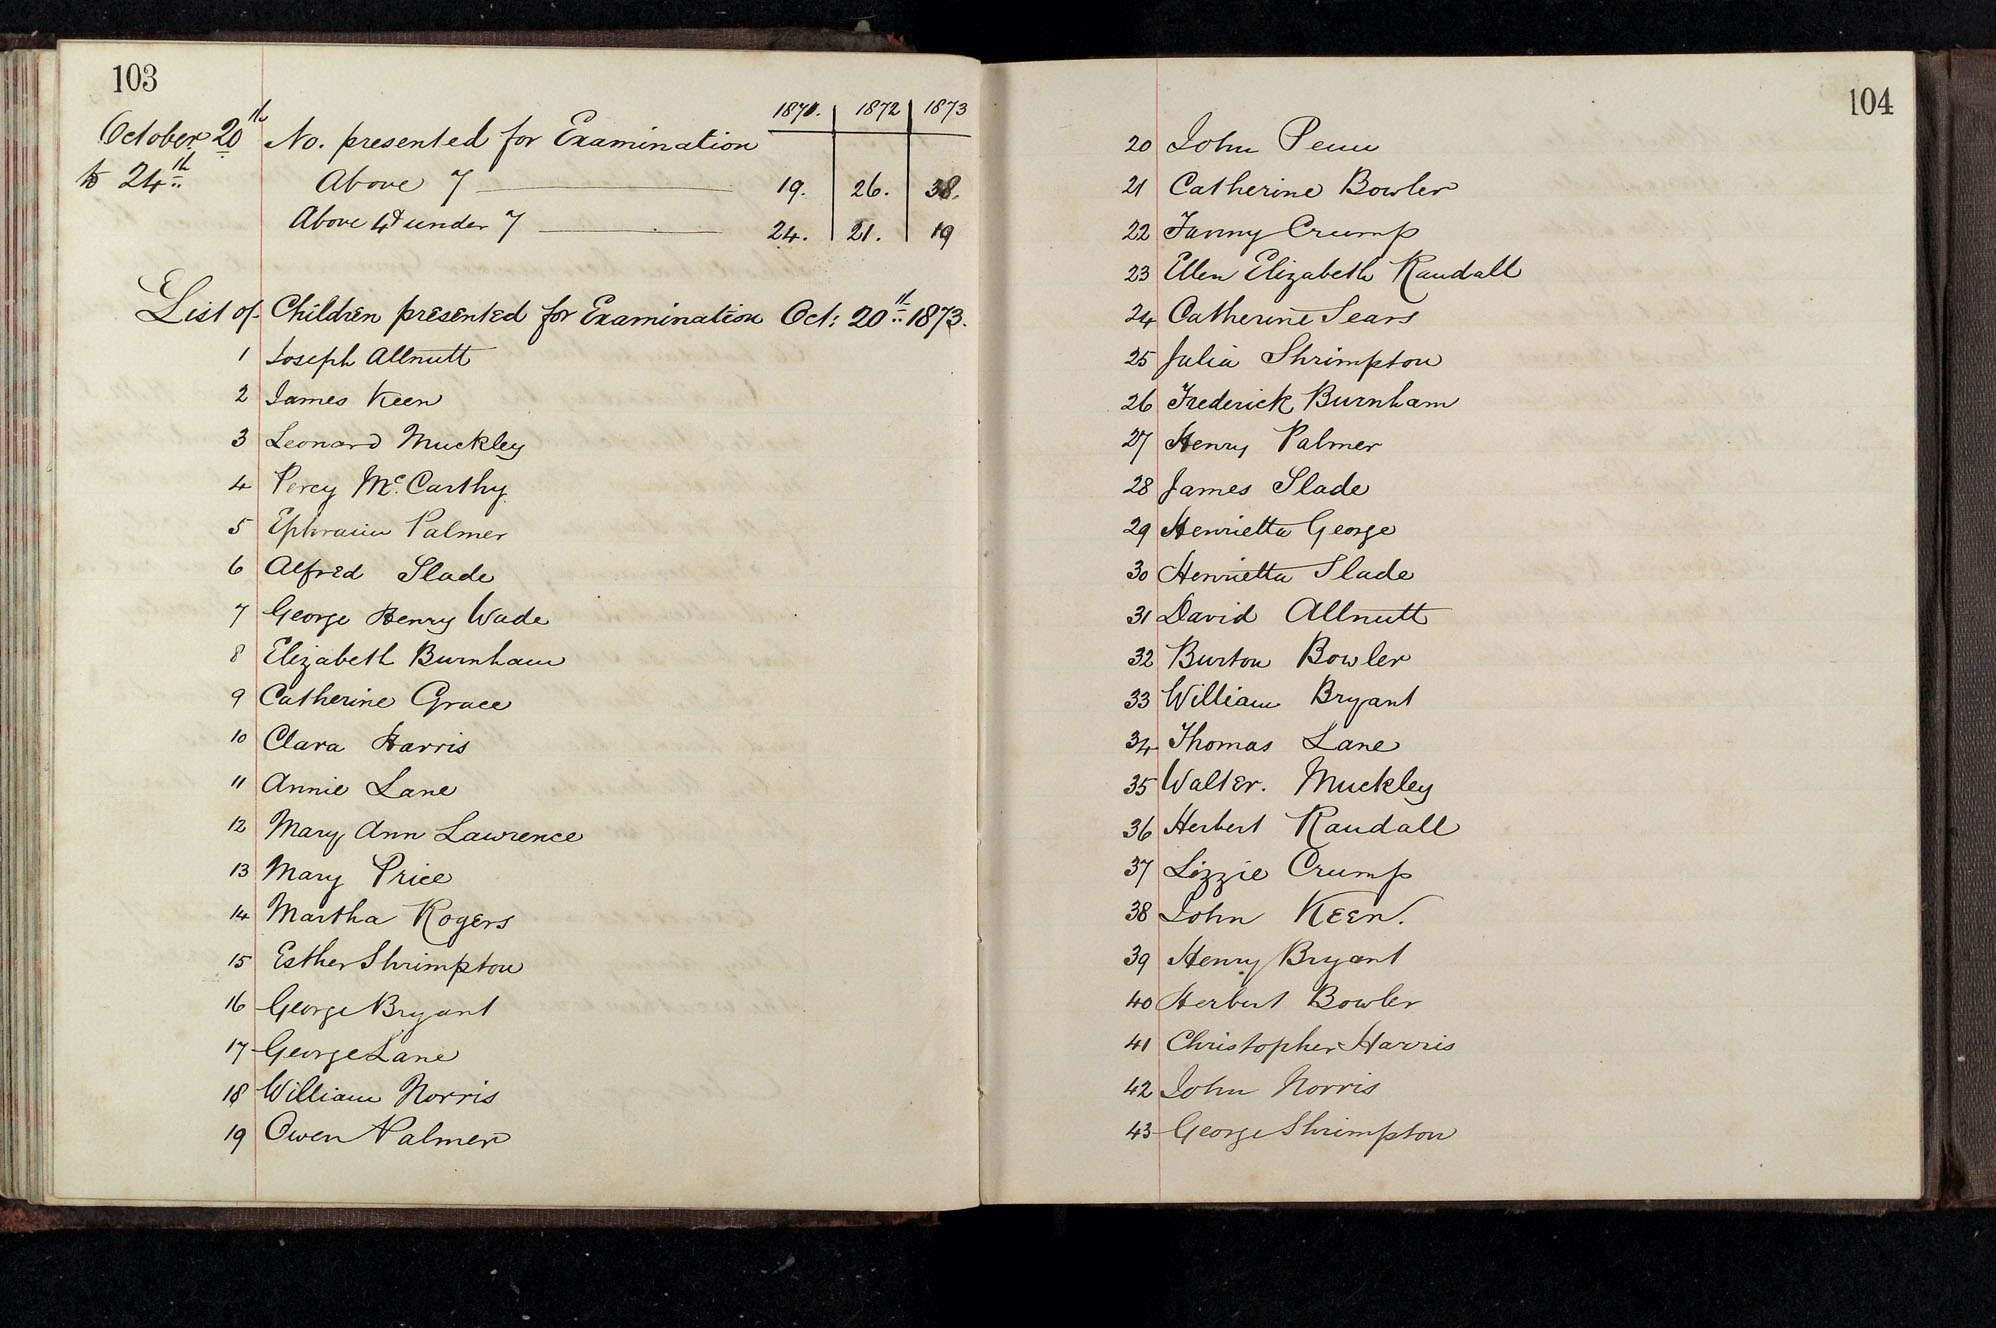 103
1871. 1872 1873
October 20th No. presented for Examination
to 24th Above 7 19. 26. 38.
Above 4 & under 7 24. 21. 19
List of Children presented for Examination Oct: 20th 1873.
1 Joseph Allnutt
2 James Keen
3 Leonard Muckley
4 Percy Mc. Carthy
5 Ephraim Palmer
6 Alfred Slade
7 George Henry Wade
8 Elizabeth Burnham
9 Catherine Grace
10 Clara Harris
11 Annie Lane
12 Mary Ann Lawrence
13 Mary Price
14 Martha Rogers
15 Esther Shrimpton
16 George Bryant
17 George Lane
18 William Norris
19 Owen Palmer
104
20 John Penn
21 Catherine Bowler
22 Fanny Crump
23 Ellen Elizabeth Randall
24 Catherine Sears
25 Julia Shrimpton
26 Frederick Burnham
27 Henry Palmer
28 James Slade
29 Henrietta George
30 Henrietta Slade
31 David Allnutt
32 Burton Bowler
33 William Bryant
34 Thomas Lane
35 Walter. Muckley
36 Herbert Randall
37 Lizzie Crump
38 John Keen.
39 Henry Bryant
40 Herbert Bowler
41 Christopher Harris
42 John Norris
43 George Shrimpton